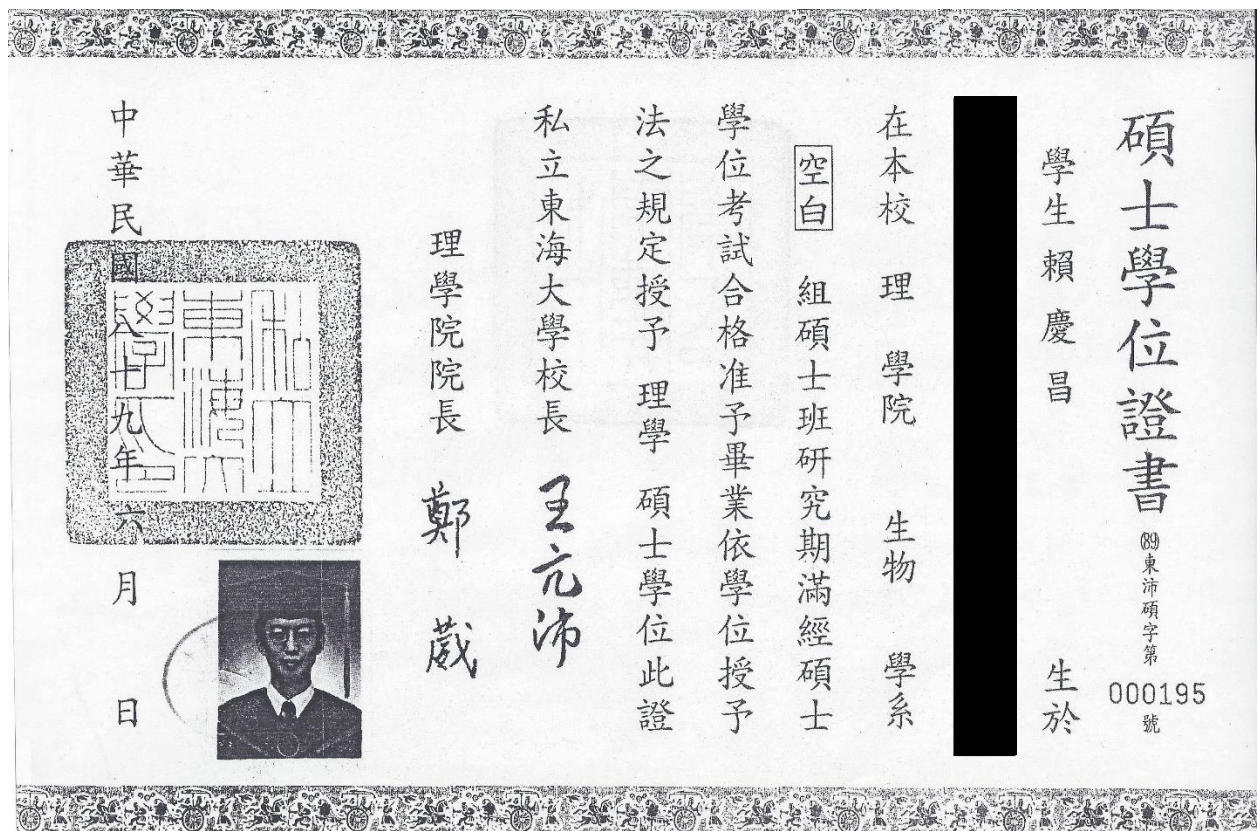 碩士學位證書
(89)東沛碩字第000195號
學生賴慶昌 生於
在本校 理 學院 生物 學系
空白 組碩士班研究期滿經碩士
學位考試合格准予畢業依學位授予
法之規定授予 理學 碩士學位此證
私立東海大學校長 王亢沛
理學院院長 鄭葳
中華民國八十九年六月 日
私立東海大學之印